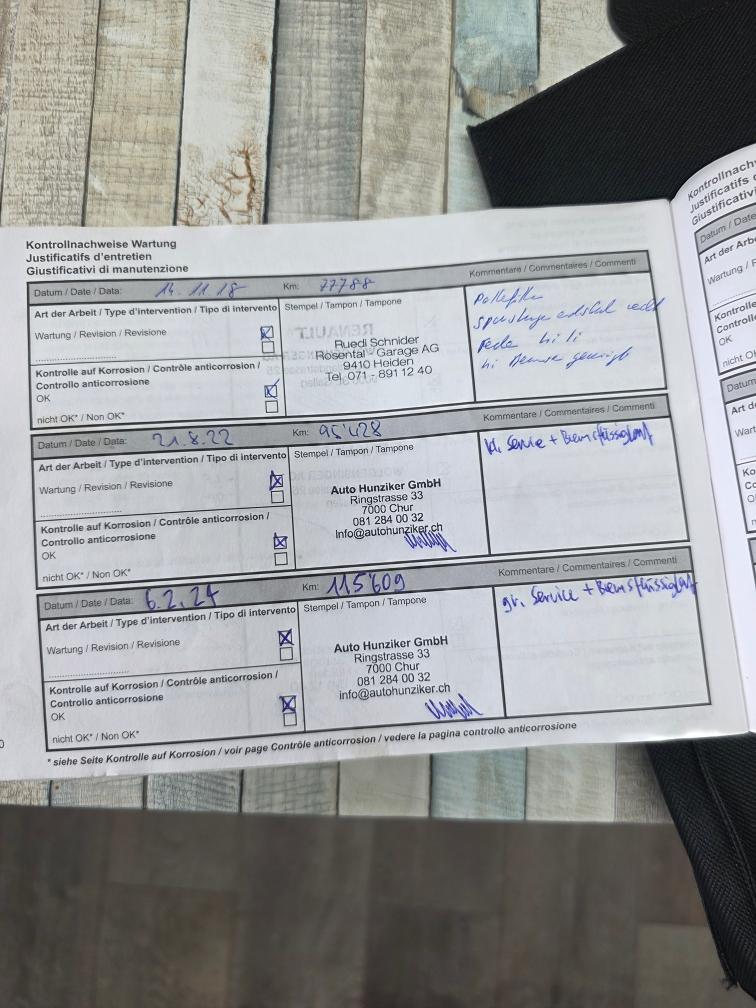 Kontrollnachweise Wartung
Justificatifs d'entretien
Giustificativi di manutenzione
Datum / Date / Data: 14.11.18 Km: 77788 Kommentare / Commentaires / Commenti
Art der Arbeit / Type d'intervention / Tipo di intervento Stempel / Tampon / Tampone
Wartung / Revision / Revisione
Ruedi Schnider
Rosental - Garage AG
9410 Heiden
Tel. 071 - 891 12 40
Kontrolle auf Korrosion / Contrôle anticorrosion /
Controllo anticorrosione
OK
nicht OK* / Non OK*
Pollefilter
hi li
hi
Datum / Date / Data: 21.8.22 Km: 95'428 Kommentare / Commentaires / Commenti
Art der Arbeit / Type d'intervention / Tipo di intervento Stempel / Tampon / Tampone
Wartung / Revision / Revisione
Auto Hunziker GmbH
Ringstrasse 33
7000 Chur
081 284 00 32
Info@autohunziker.ch
Kontrolle auf Korrosion / Contrôle anticorrosion /
Controllo anticorrosione
OK
nicht OK* / Non OK*
kl. Service + Bremsflüssigkeit
Datum / Date / Data: 6.2.24 Km: 115'609 Kommentare / Commentaires / Commenti
Art der Arbeit / Type d'intervention / Tipo di intervento Stempel / Tampon / Tampone
Wartung / Revision / Revisione
Auto Hunziker GmbH
Ringstrasse 33
7000 Chur
081 284 00 32
info@autohunziker.ch
Kontrolle auf Korrosion / Contrôle anticorrosion /
Controllo anticorrosione
OK
nicht OK* / Non OK*
gr. Service + Bremsflüssigkeit
* siehe Seite Kontrolle auf Korrosion / voir page Contrôle anticorrosion / vedere la pagina controllo anticorrosione